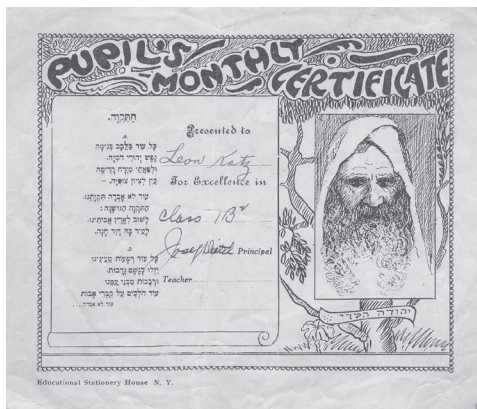 PUPIL'S
MONTHLY
CERTIFICATE
התקוה.
א.
כל עוד בלבב פנימה
נפש יהודי הומיה,
ולפאתי מזרח קדימה
עין לציון צופיה. –
עוד לא אבדה תקותנו,
התקוה הנושנה:
לשוב לארץ אבותינו,
לעיר בה דוד חנה.
ב.
כל עוד דמעות מעינינו
יזלו כגשם נדבות,
ורבבות מבני עמנו
עוד הולכים על קברי אבות
עוד לא אבדה...
Presented to
Leon Katz
For Excellence in
class 1B²
Joseph Principal
Teacher
יהודה הלוי
Educational Stationery House N. Y.